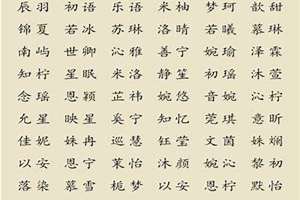 辰羽 初语 乐语 米柚 梦珂 歆甜
锦夏 若冰 苏琳 洛晴 若曦 慕琳
南屿 世卿 沁雅 善宁 婉瑜 泽霖
知柠 星眠 米洛 静笙 初瑶 沐萱
念瑶 恩颖 芷祎 婉悠 音婉 沁柠
允星 映星 奚宁 知忆 莞琪 意昕
佳妮 姝冉 巡慧 钰莹 文茵 婳初
以安 恩宁 茉怡 沐颜 婉沁 黎初
落染 慕雪 栀梦 以安 恩柠 默怡